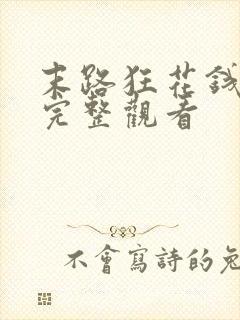 末路狂花錢
完整觀看
不會寫詩的兔